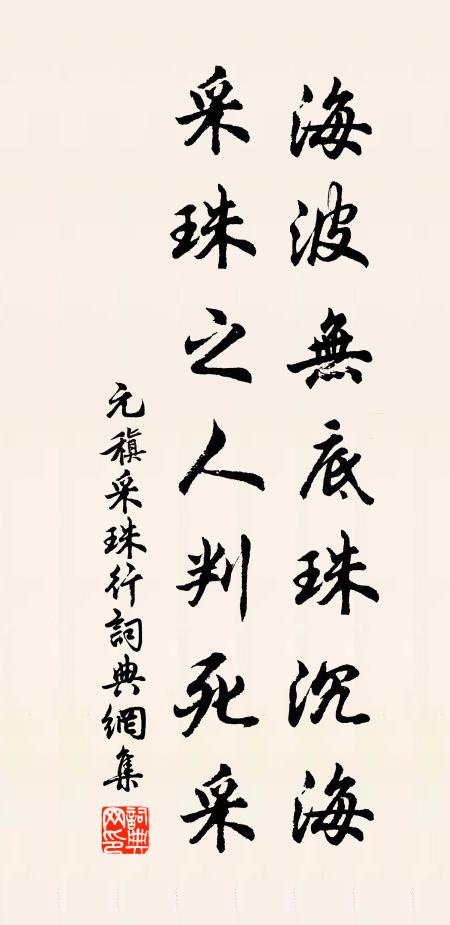 海波無底珠沉海
采珠之人判死采
元稹采珠行詞典網集
詞典网印